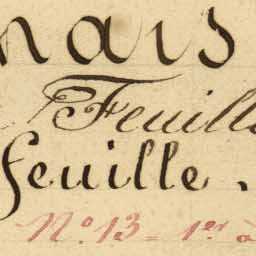 nais
Feuill
feuille.
N.º 13 = 1er à